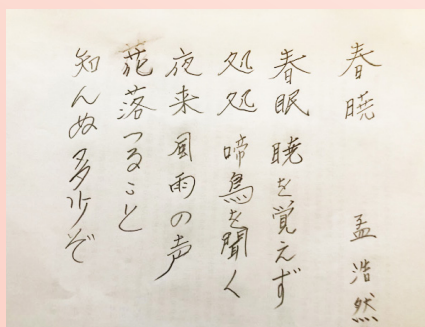 春暁
孟浩然
春眠暁を覚えず
処処啼鳥を聞く
夜来風雨の声
花落つること
知んぬ多少ぞ